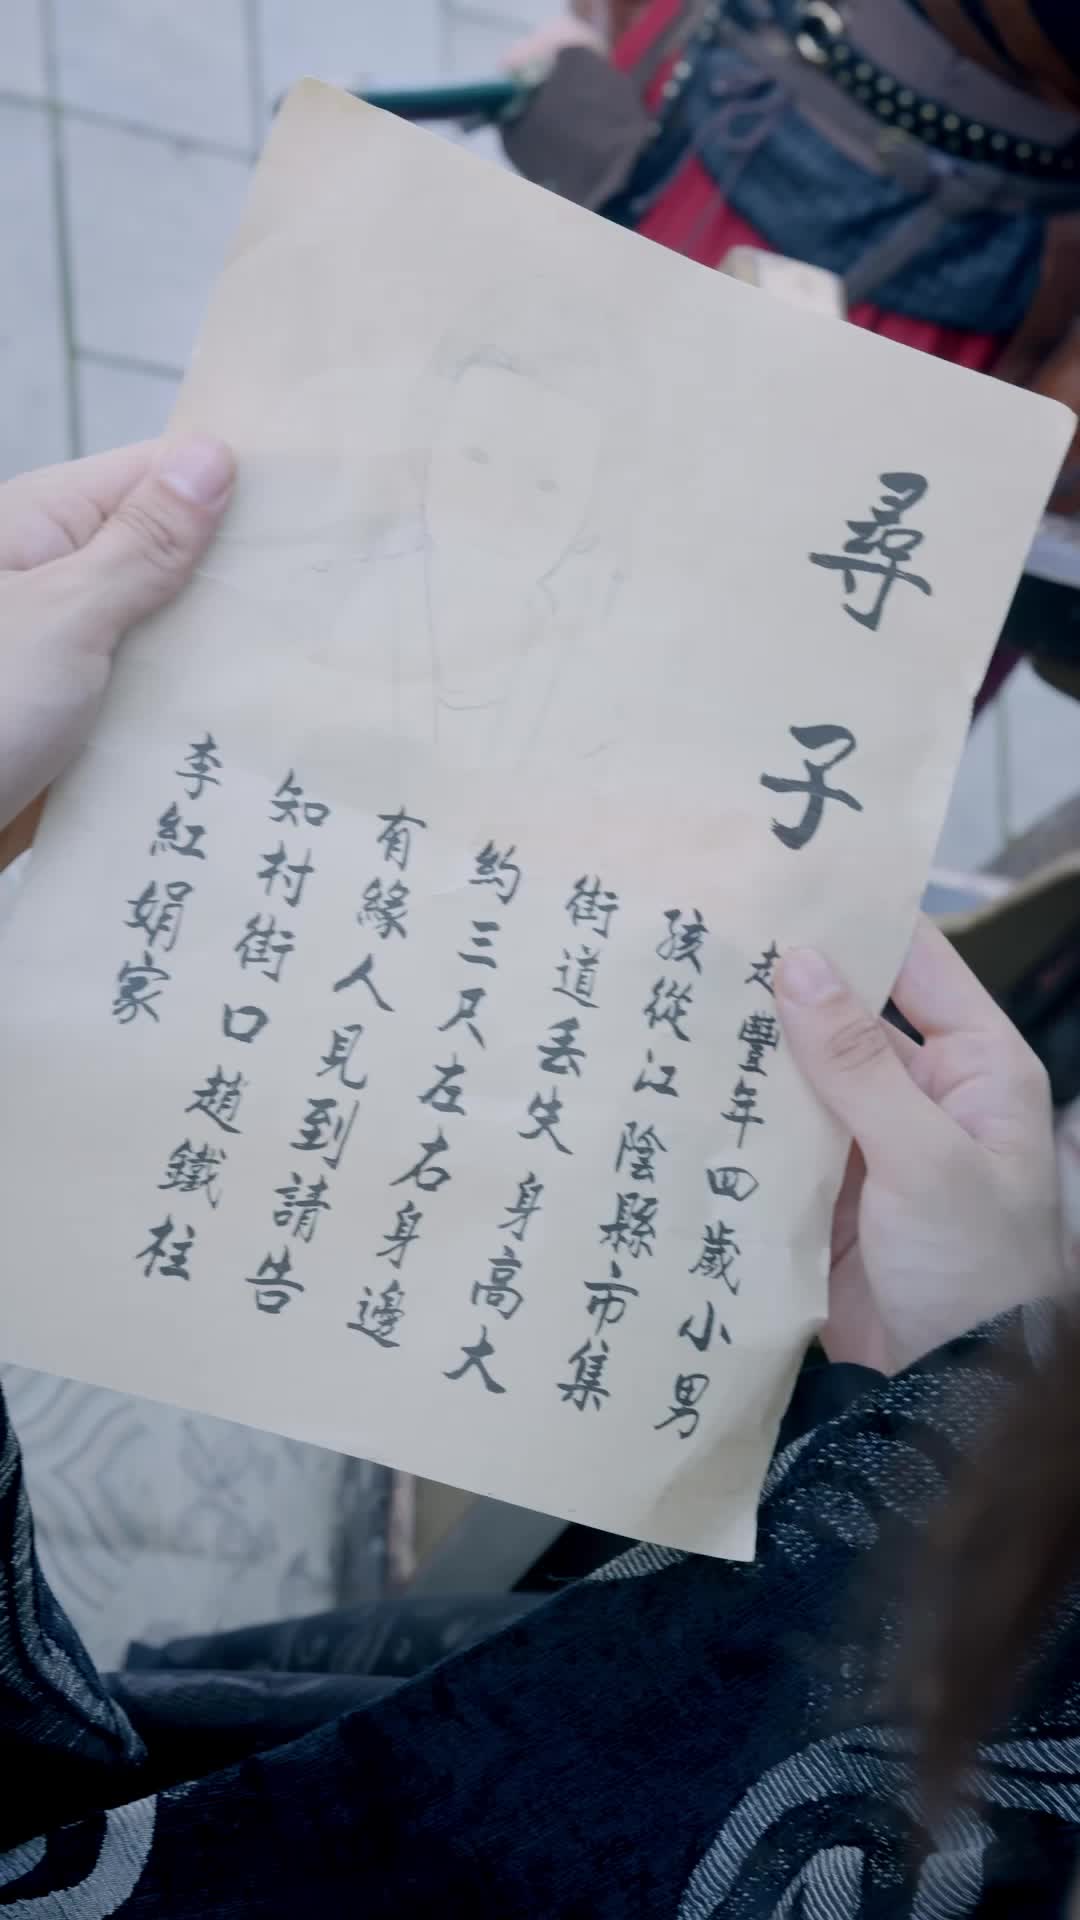 尋子
趙豐年四歲小男
孩從江陰縣市集
街道丟失身高大
約三尺左右身邊
有緣人見到請告
知村街口趙鐵柱
李紅娟家